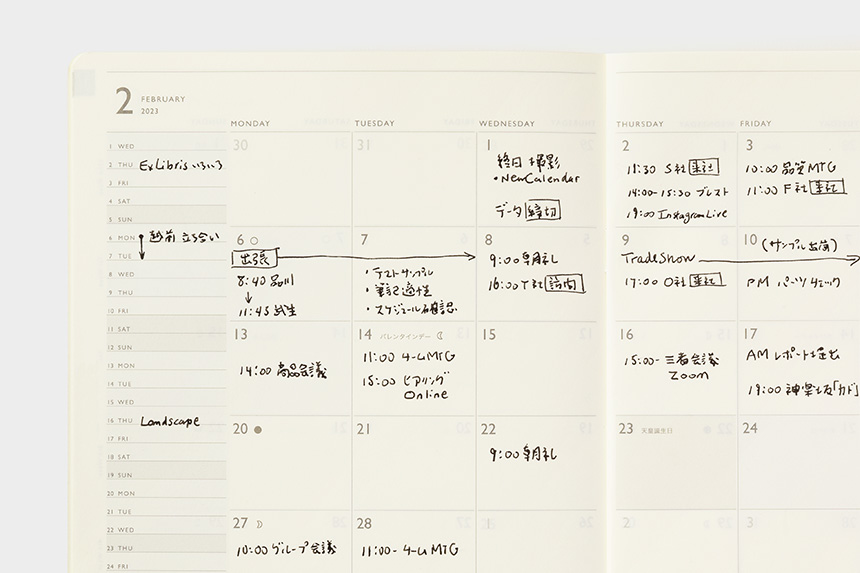 2 FEBRUARY
2023
MONDAY TUESDAY WEDNESDAY THURSDAY FRIDAY
1 WED
2 THU ExLibris いろいろ
3 FRI
4 SAT
5 SUN
6 MON 越前 立ち会い
7 TUE
8 WED
9 THU
10 FRI
11 SAT
12 SUN
13 MON
14 TUE
15 WED
16 THU Landscape
17 FRI
18 SAT
19 SUN
20 MON
21 TUE
22 WED
23 THU
24 FRI
30
31
1
終日 撮影
・New Calendar
データ 締切
2
11:30 S社 来社
14:00-15:30 ブレスト
19:00 Instagram Live
3
10:00 品質MTG
11:00 F社 来社
6
出張
8:40 品川
↓
11:45 武生
7
・テストサンプル
・筆記適性
・スケジュール確認
8
9:00 朝礼
16:00 Y社 訪問
9
Trade Show
17:00 O社 来社
10
(サンプル出荷)
PM パーツチェック
13
14:00 商品会議
14 バレンタインデー
11:00 チームMTG
15:00 ヒアリング
Online
15
16
15:00- 三者会議
Zoom
17
AM レポート提出
19:00 神楽坂「カド」
20
21
22
9:00 朝礼
23 天皇誕生日
24
27
10:00 グループ会議
28
11:00- チームMTG
2
3